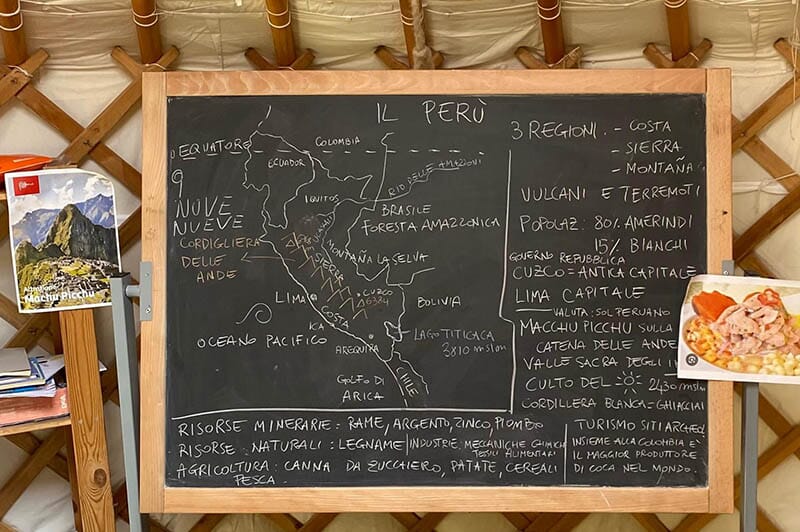 IL PERÙ
EQUATORE
COLOMBIA
ECUADOR
IQUITOS
RIO DELLE AMAZZONI
BRASILE
FORESTA AMAZZONICA
9
NOVE
NUEVE
CORDIGLIERA
DELLE
ANDE
UCAYALI
MONTAÑA LA SELVA
SIERRA
CUZCO
6384
BOLIVIA
LIMA
COSTA
ICA
OCEANO PACIFICO
AREQUIPA
LAGO TITICACA
3810 mslm
GOLFO DI
ARICA
CHILE
3 REGIONI - COSTA
- SIERRA
- MONTAÑA
VULCANI E TERREMOTI
POPOLAZ: 80% AMERINDI
15% BIANCHI
GOVERNO REPUBBLICA
CUZCO = ANTICA CAPITALE
LIMA CAPITALE
VALUTA: SOL PERUANO
MACCHU PICCHU SULLA
CATENA DELLE ANDE
VALLE SACRA DEGLI
CULTO DEL 2430 mslm
CORDILLERA BLANCA = GHIACCIAI
RISORSE MINERARIE: RAME, ARGENTO, ZINCO, PIOMBO
RISORSE NATURALI: LEGNAME INDUSTRIE MECCANICHE CHIMICHE
TESSILI ALIMENTARI
AGRICOLTURA: CANNA DA ZUCCHERO, PATATE, CEREALI
PESCA.
TURISMO SITI ARCHEOL
INSIEME ALLA COLOMBIA E'
IL MAGGIOR PRODUTTORE
DI COCA NEL MONDO.
Machu Picchu